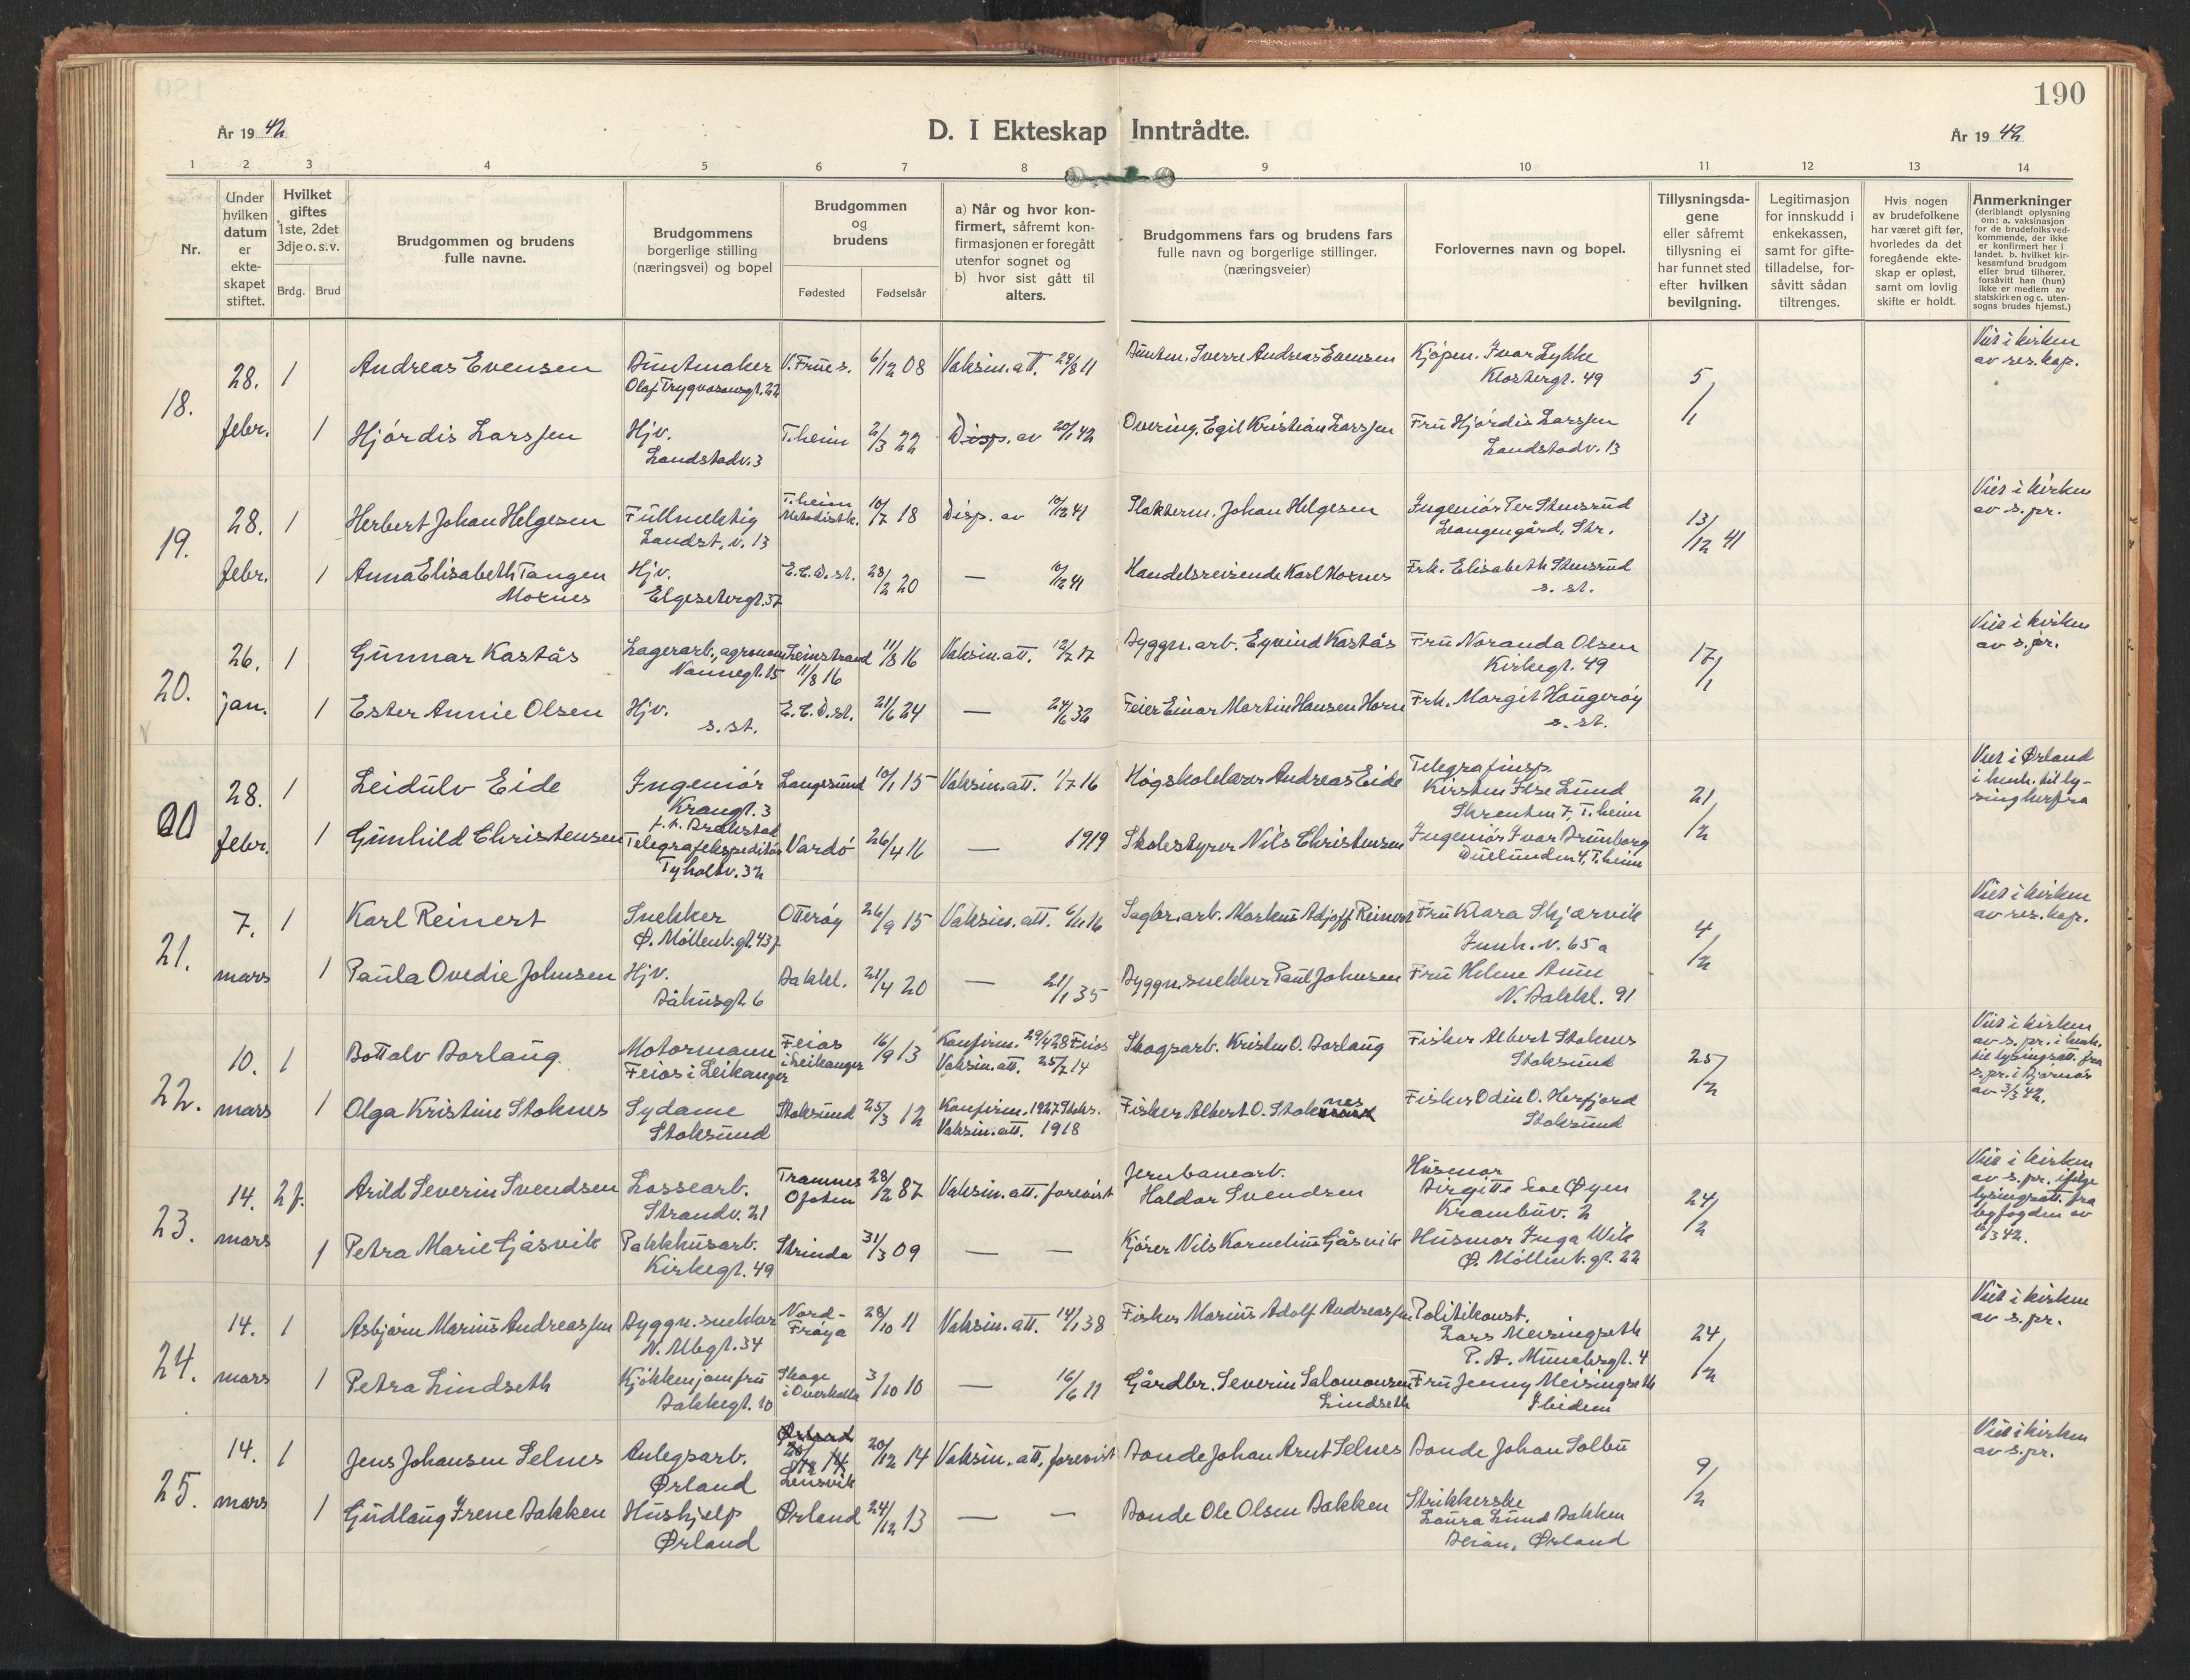 190
År 19 42
D. I Ekteskap Inntrådte.
År 19 42
1 2 3 4 5 6 7 8 9 10 11 12 13 14
Nr.
Under hvilken datum er ekteskapet stiftet.
Hvilket giftes 1ste, 2det 3dje o. s. v.
Brdg. Brud
Brudgommen og brudens
fulle navne.
Brudgommens
borgerlige stilling
(næringsvei) og bopel
Brudgommen
og
brudens
Fødested Fødselsår
a) Når og hvor kon-
firmert, såfremt kon-
firmasjonen er foregått
utenfor sognet og
b) hvor sist gått til
alters.
Brudgommens fars og brudens fars
fulle navn og borgerlige stillinger.
(næringsveier)
Forlovernes navn og bopel.
Tillysningsda-
gene
eller såfremt
tillysning ei
har funnet sted
efter hvilken
bevilgning.
Legitimasjon
for innskudd i
enkekassen,
samt for gifte-
tilladelse, for-
såvitt sådan
tiltrenges.
Hvis nogen
av brudefolkene
har været gift før,
hvorledes da det
foregående ekte-
skap er opløst,
samt om lovlig
skifte er holdt.
Anmerkninger
(deriblandt oplysning
om: a. vaksinasjon
for de brudefolks ved-
kommende, der ikke
er konfirmert her i
landet. b. hvilket kir-
kesamfund brudgom
eller brud tilhører,
forsåvitt han (hun)
ikke er medlem av
statskirken og c. uten-
sogns brudes hjemst.)
18. 28. febr. 1 Andreas Evensen Buntmaker V. Frues. 6/12 08 Vaksin. att. 29/8 11 Buntm. Sverre Andreas Evensen Kjøpm. Ivar Lykke 5/1 Viet i kirken
Olaf Trygvasonsgt. 22 Klostergt. 49 av res. kap.
1 Hjørdis Larssen Hjv. T.heim 2/3 22 Disp. av 20/1 42 Overing. Egil Kristian Larssen Fru Hjørdis Larssen
Landstadv. 3 Landstadv. 13
19. 28. febr. 1 Herbert Johan Helgesen Fullmektig T.heim Metodistk. 10/7 18 Disp. av 10/12 41 Johan Helgesen Ingeniør Per Stensrud 13/12 41 Viet i kirken
Landst. v. 13 Langengård, Str. av s. pr.
1 Anna Elisabeth Tangen Hjv. E.C.D.st. 28/2 20 — 10/12 41 Handelsreisende Karl Moxnes Frk. Elisabeth Stensrud
Moxnes Elgesetergt. 37 s. st.
20. 26. jan. 1 Gunnar Kastås Lagerarb., agronom Leinstrand 11/8 16 Vaksin. att. 12/7 17 Byggn. arb. Eyvind Kastås Fru Noranda Olsen 17/1 Viet i kirken
Nannegt. 15 11/8 16 Kirkegt. 49 av s. pr.
1 Ester Annie Olsen Hjv. E.C.D.st. 21/6 24 — 24/6 32 Feier Einar Martin Hansen Horn Frk. Margit Haugerøy
s. st. s. st.
20 28. febr. 1 Leidulv Eide Ingeniør Langesund 10/1 15 Vaksin. att. 1/7 16 Høgskolelærer Andreas Eide Telegrafinsp. 21/2 Viet i Ørland
Krangt. 3 Kirsten Ilse Lund i henh. til ly-
f. t. Brekstad Skrenten 7, T.heim sing herfra
1 Gunhild Christensen Telegrafekspeditør Vardø 26/4 16 — 1919 Skolestyrer Nils Christensen Ingeniør Ivar Brunborg
Tyholtv. 32 4, T.heim
21. 7. mars 1 Karl Reinert Snekker Otterøy 26/9 15 Vaksin. att. 6/11 16 Sagbr. arb. Markus Adjoff Reinert Fru Klara Skjærvik 4/2 Viet i kirken
Ø. Møllenb. gt. 43 Innh. v. 65 a av res. kap.
1 Paula Ovedie Johnsen Hjv. Bakkl. 21/4 20 — 21/1 35 Byggn. snekker Paul Johnsen Fru Helene Aune
Båhusgt. 6 N. Bakkl. 91
22. 10. mars 1 Bottolv Borlaug Motormann Feios i Leikanger 16/9 13 Konfirm. 29/4 28 Feios Skogsarb. Kristen O. Borlaug Fisker Albert Stoknes 25/2 Viet i kirken
Feios i Leikanger Vaksin. att. 25/7 14 Stoksund av s. pr. i henh.
til lysingsatt. fra
s. pr. i Bjørnør
av 3/3 42.
1 Olga Kristine Stoknes Sydame Stoksund 25/3 12 Konfirm. 1927 Stoks. Fisker Albert O. Stoknes Fisker Odin O. Herfjord
Stoksund Vaksin. att. 1918 Stoksund
23. 14. mars 2 f. Arild Severin Svendsen Lossearb. Tramnes Ofoten 28/2 87 Vaksin. att. forevist Jernbanearb. Husmor 24/2 Viet i kirken
Strandv. 21 Haldor Svendsen Birgitte Øyen av s. pr. ifølge
Krambuv. 2 lysingsatt. fra
byfogden av
10/3 42.
1 Petra Marie Gjåsvik Pakkhusarb. Strinda 31/3 09 — — Kjører Nils Kornelius Gjåsvik Husmor Inga Wik
Kirkegt. 49 Ø. Møllenb. gt. 22
24. 14. mars 1 Asbjørn Marius Andreassen Byggn. snekker Nord-Frøya 28/10 11 Vaksin. att. 14/1 38 Fisker Marius Adolf Andreassen Politikonst. 24/2 Viet i kirken
N. Mbgt. 34 Lars Meisingseth av s. pr.
P. A. Munchsgt. 4
1 Petra Lindseth Kjøkkenjomfru Skage i Overhalla 3/10 10 — 16/6 11 Gårdbr. Severin Salomonsen Fru Jenny Meisingseth
Bakkegt. 10 Lindseth Ibidem
25. 14. mars 1 Jens Johansen Selnes Anlegsarb. Ørland 20/12 14 Lensvik 20/12 14 Vaksin. att. forevist Bonde Johan Arnt Selnes Bonde Johan Solbu 9/2 Viet i kirken
Ørland av s. pr.
1 Gudlaug Irene Bakken Hushjelp Ørland 24/12 13 — — Bonde Ole Olsen Bakken Strikkerske
Ørland Laura Lund Bakken
Beian, Ørland